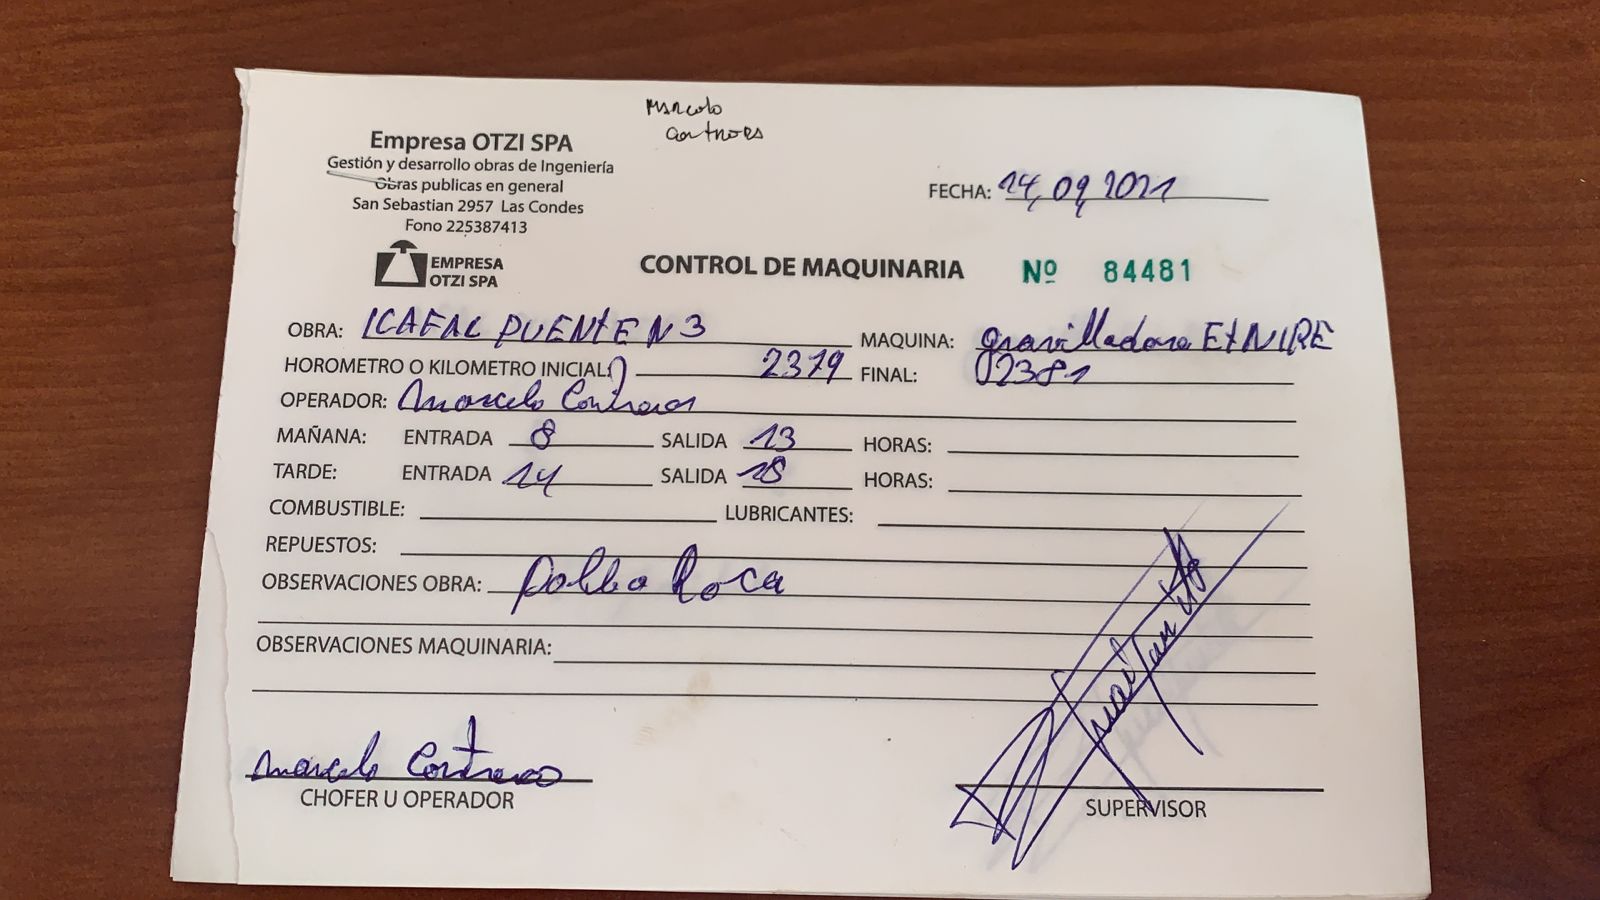 Marcelo
Empresa OTZI SPA
Gestión y desarrollo obras de Ingeniería
Obras publicas en general
San Sebastian 2957 Las Condes
Fono 225387413
FECHA: 14,09,2021
EMPRESA
OTZI SPA
CONTROL DE MAQUINARIA Nº 84481
OBRA: ICAFAL PUENTE N 3 MAQUINA: gravilladora EtNIRE
HOROMETRO O KILOMETRO INICIAL: 2379 FINAL: 02381
OPERADOR: Marcelo Contreras
MAÑANA: ENTRADA 8 SALIDA 13 HORAS:
TARDE: ENTRADA 14 SALIDA 18 HORAS:
COMBUSTIBLE: LUBRICANTES:
REPUESTOS:
OBSERVACIONES OBRA: Roca
OBSERVACIONES MAQUINARIA:
Marcelo Contreras
CHOFER U OPERADOR
SUPERVISOR